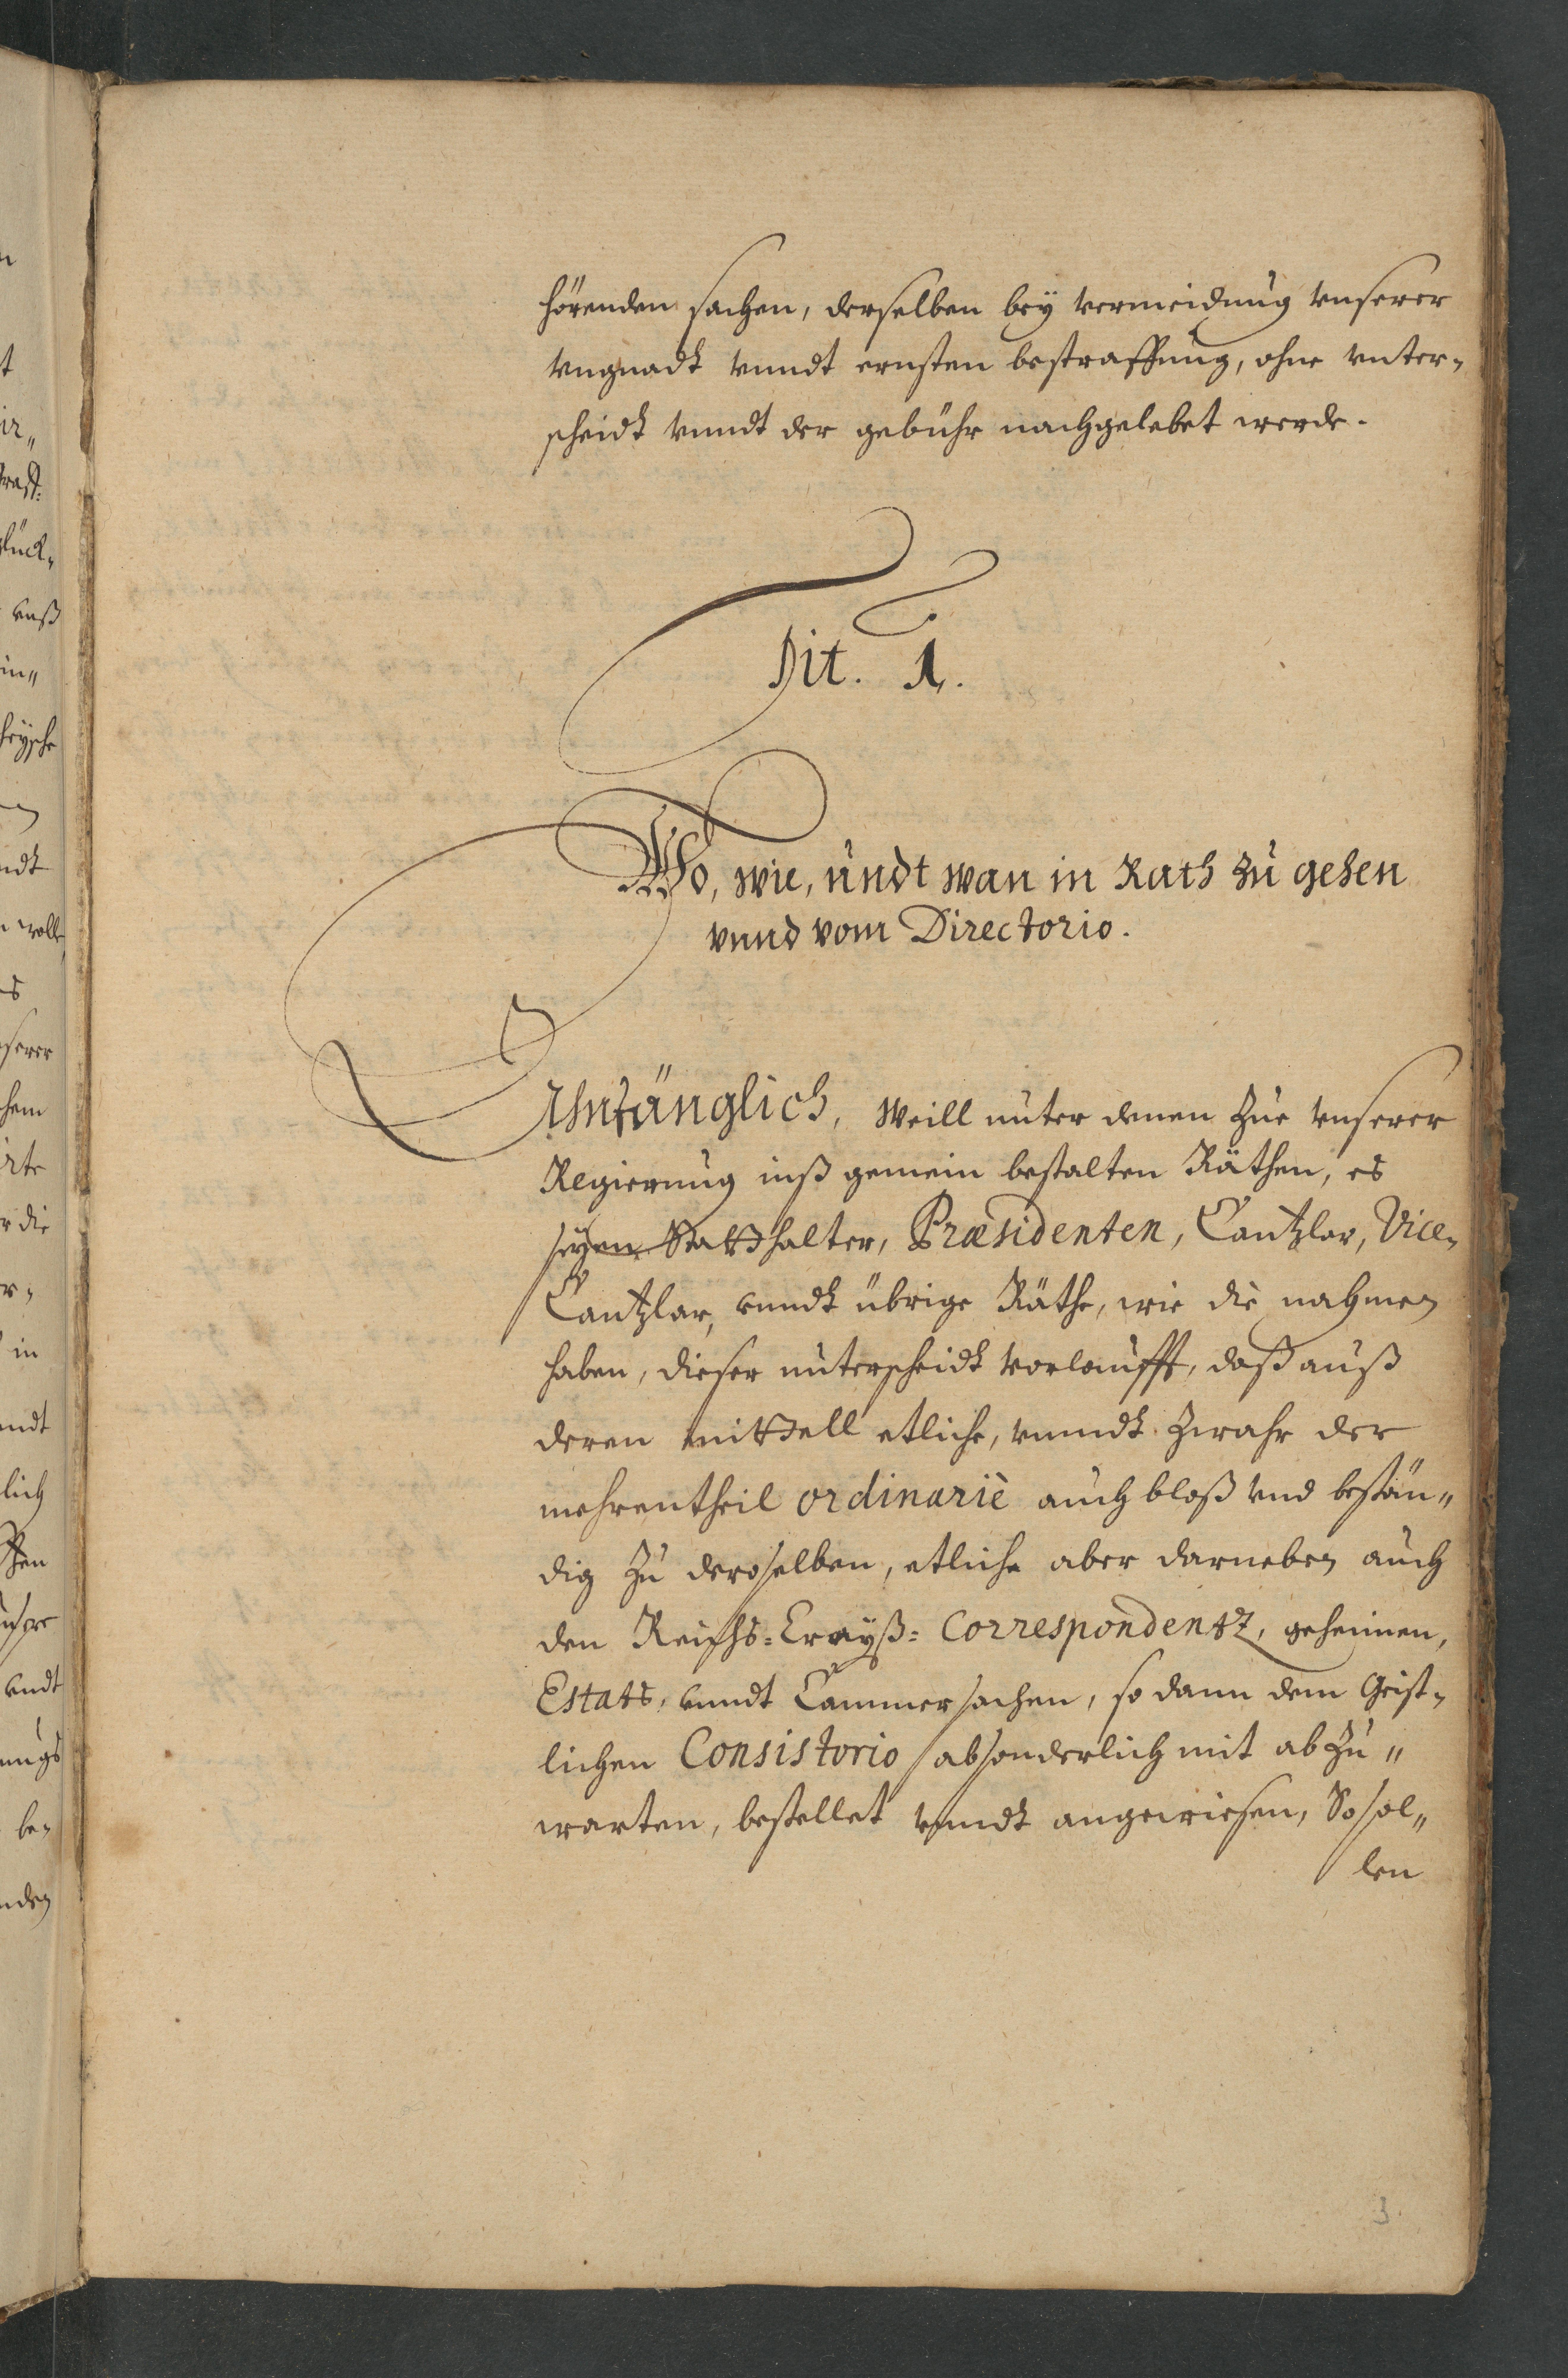 hörenden sachen, derselben bey vermeidung vnserer
vngnadt vnndt ernsten bestraffung, ohne vnter-
scheidt vnndt der gebühr nachgelebet werde.
Tit. 1.
Wo, wie, undt wan in Rath zu gehen
vnnd vom Directorio.
Anfänglich, Weill unter denen zue vnserer
Regierung inß gemein bestalten Räthen, es
seyen Statthalter, Præsidenten, Cantzlar, Vice-
Cantzlar, vnndt übrige Räthe, wie die nahmen
haben, dieser unterscheidt vorlaufft, daß auß
deren mittell etliche, vnndt zwahr der
mehrentheil ordinariè auch bloß vnd bestän„
dig zu deroselben, etliche aber darneben auch
den Reichs=Crayß= Correspondentz, geheimen,
Estats, vnndt Cammersachen, so dann dem Geist-
lichen Consistorio absonderlich mit abzu„
warten, bestellet vnndt angewiesen, So sol„
len
3.